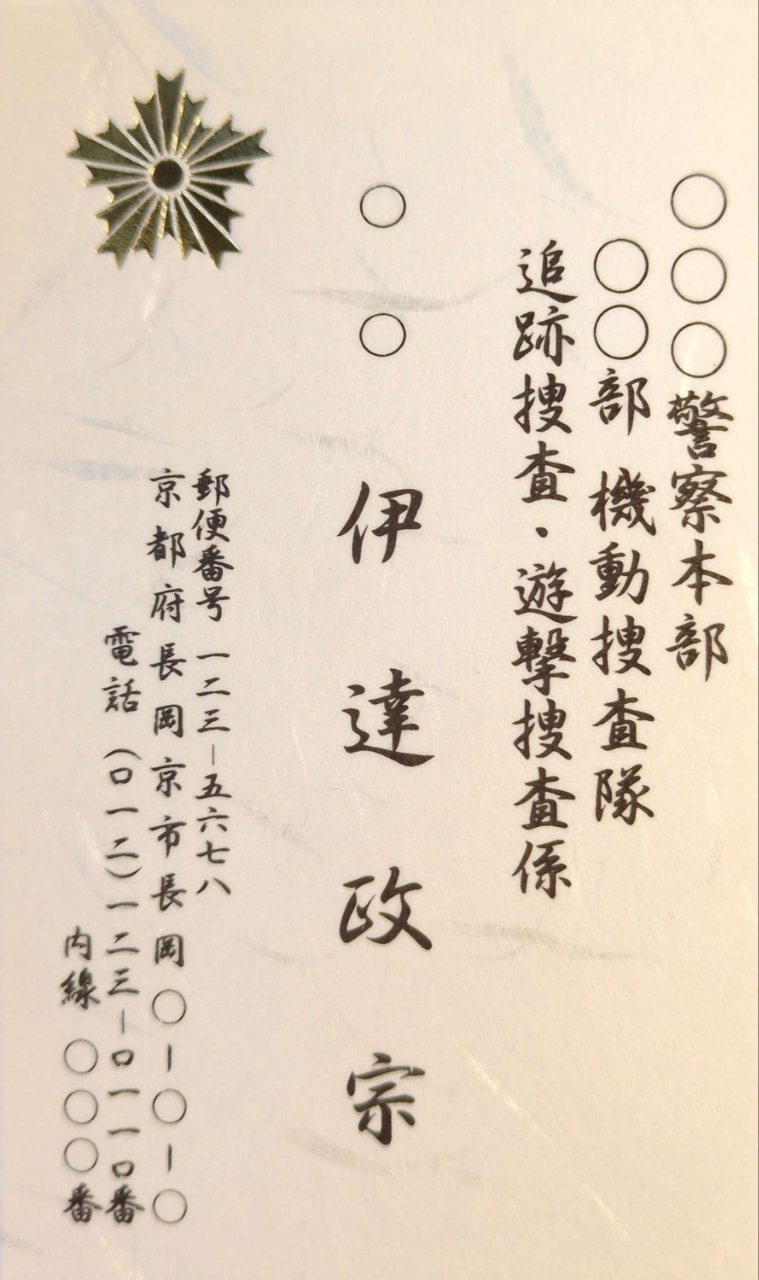 ○○○警察本部
○○部 機動捜査隊
追跡捜査・遊撃捜査係
○○ 伊達政宗
郵便番号 一二三-五六七八
京都府長岡京市長岡○-○-○
電話 (〇一二)一二三-〇一一〇番
内線 ○○○番